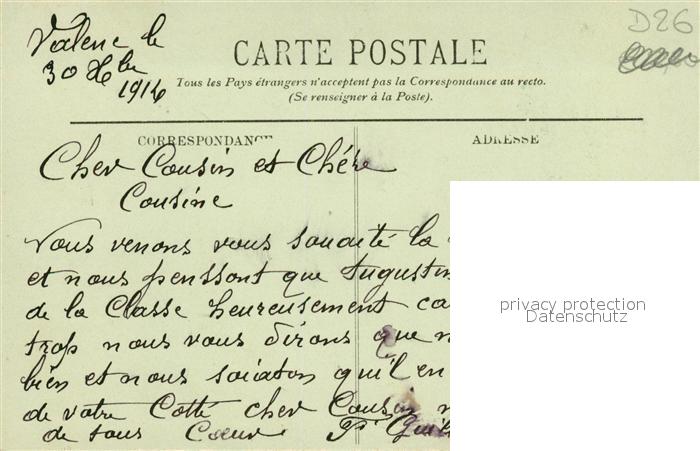 D26
Valence le
30 Xbre
1914
CARTE POSTALE
Tous les Pays étrangers n'acceptent pas la Correspondance au recto.
(Se renseigner à la Poste).
CORRESPONDANCE
ADRESSE
Cher Cousin et Chére
Cousine
Nous venons vous souaité la
et nous penssont que Augustin
de la Classe heureusement ca
trop nous vous dirons que n
bien et nous soiaton qu'il en
de votre Cotté cher Cousin
de tous Coeur
privacy protection
Datenschutz